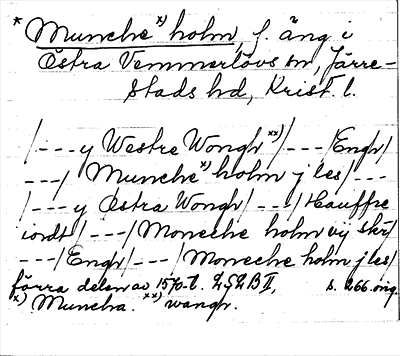 * Munche x) holm, f. äng i
Östra Vemmerlövs sn, Järre-
stads hd, Krist. l.
/---y Westre Wongh xx)/---/Engh/
---/ Munche x) holm j les/---
/---y Östra Wongh/---/Hauffre
iordt/---/Moneche holm vij skr/
---/Engh/---/Moneche holm j les/
förra delen av 1570-t. LSLB II, s. 266. orig.
x) Muncha. xx) wangh.